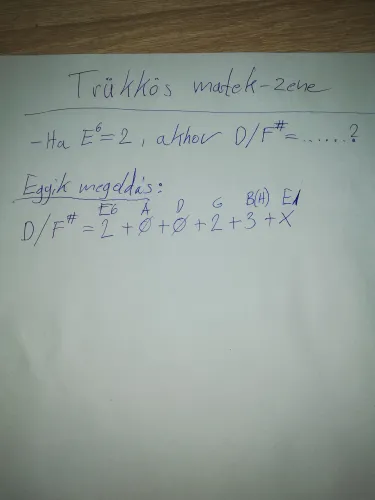 Trükkös matek-zene
- Ha E⁶=2, akkor D/F#=......?
Egyik megoldás:
E6 A D G B(H) E1
D/F# = 2 + 0 + 0 + 2 + 3 + X